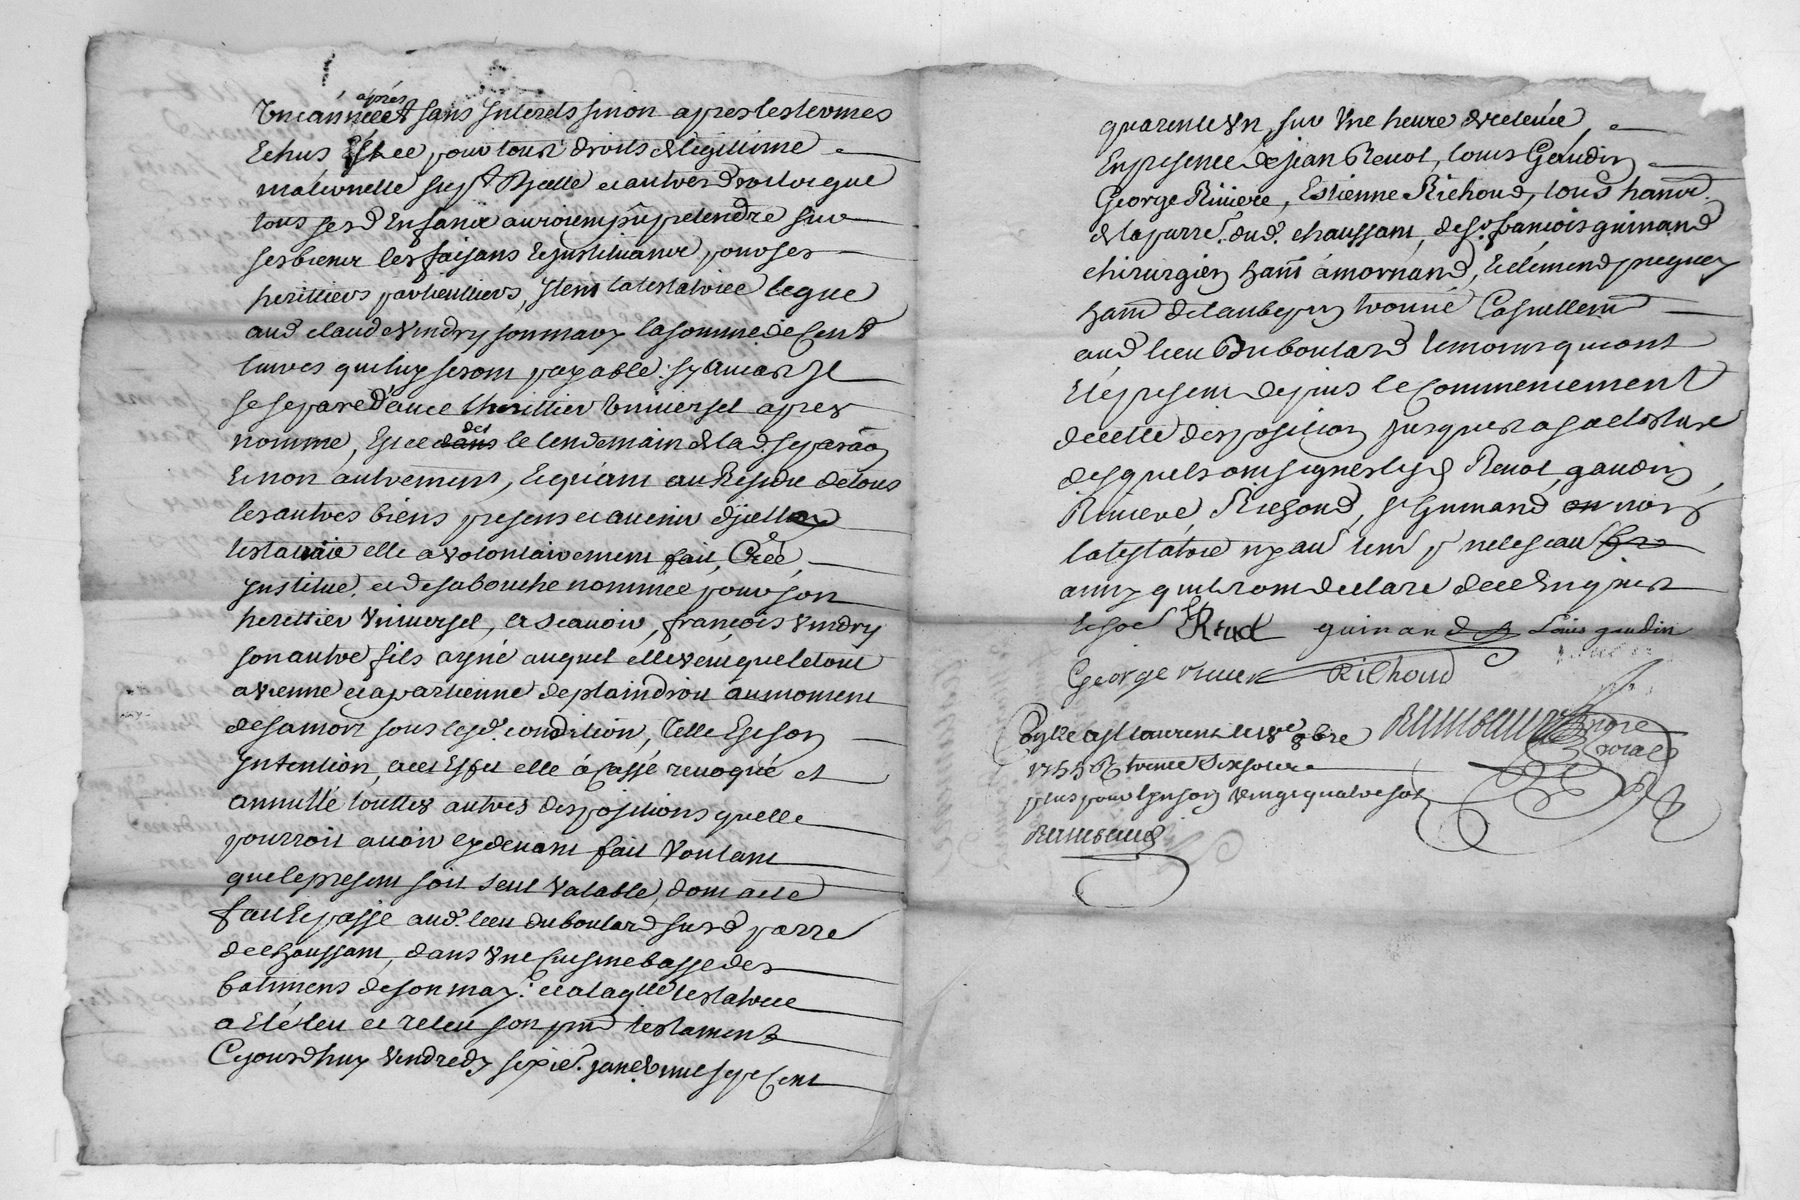 Une année après et sans Interets sinon apres les termes
Echus Et Ce pour tous droits de legitime
maternelle supt et autres droits que
tous sesd Enfans auroient pû pretendre sur
ses biens les faisans Et Instituants pour ses
herittiers particulliers, Item la testatrice legue
aud claude Vindry son mary la somme de Cent
livres qui luy seront payable sy Avant Il
se separe d'avec lherittier Universel apres
nommé, Et ce dans des le lendemain de lad. separaõn
Et non autrement, Et quant au Residu de tous
les autres biens presens et avenir Icelle
testatrice elle a volontairement fait, Créé,
Institue, et de sa bouche nommée pour son
herittier Universel, et scavoir, françois Vindry
son autre fils ayné auquel elle veut que le tout
avienne et apartienne de plain droit au moment
de sa mort sous lesd. condition, Telle Est son
Intention, a cet Effet elle á Cassé revoqué et
annullé touttes autres dispositions quelle
pourroit avoir cy devant fait Voulant
que le present soit seul valable, dont acte
fait Et passé aud. lieu du boulard susd parre
de chaussant, dans Une Cuisine basse des
batimens de son mary. et a laqlle testatrice
a Eté leu et releu son pnt testament
Cejourdhuy Vendredy sixie. janer mil sept Cent
quarente Un, sur Une heure de relevée,
En presence de jean Renot, louis Gaudin
George Riviere, Estienne Richoud, tous hants
de la parre. dud. chaussant, de Sr. françois guinand
chirurgien hant á mornand, Et clemend
hant de laubepin trouvé Casuellemt
aud. lieu Du boulard temoins qui ont
Eté present depuis le Commencement
de cette disposition jusques a sa closture
desquels ont signes lesd Renot, gaudin,
Riviere Richoud, Sr Guinand et non
la testatrice ny aud temt pr ne le scavoir
ainsy quils ont declaré de ce Enquis
Et soé Renot guinand Louis gaudin
George riviere Richoud
Conlle a St Laurent le 18e 8bre
1755 R trente Six sols
plus pour Lins on Vingt quatre sols